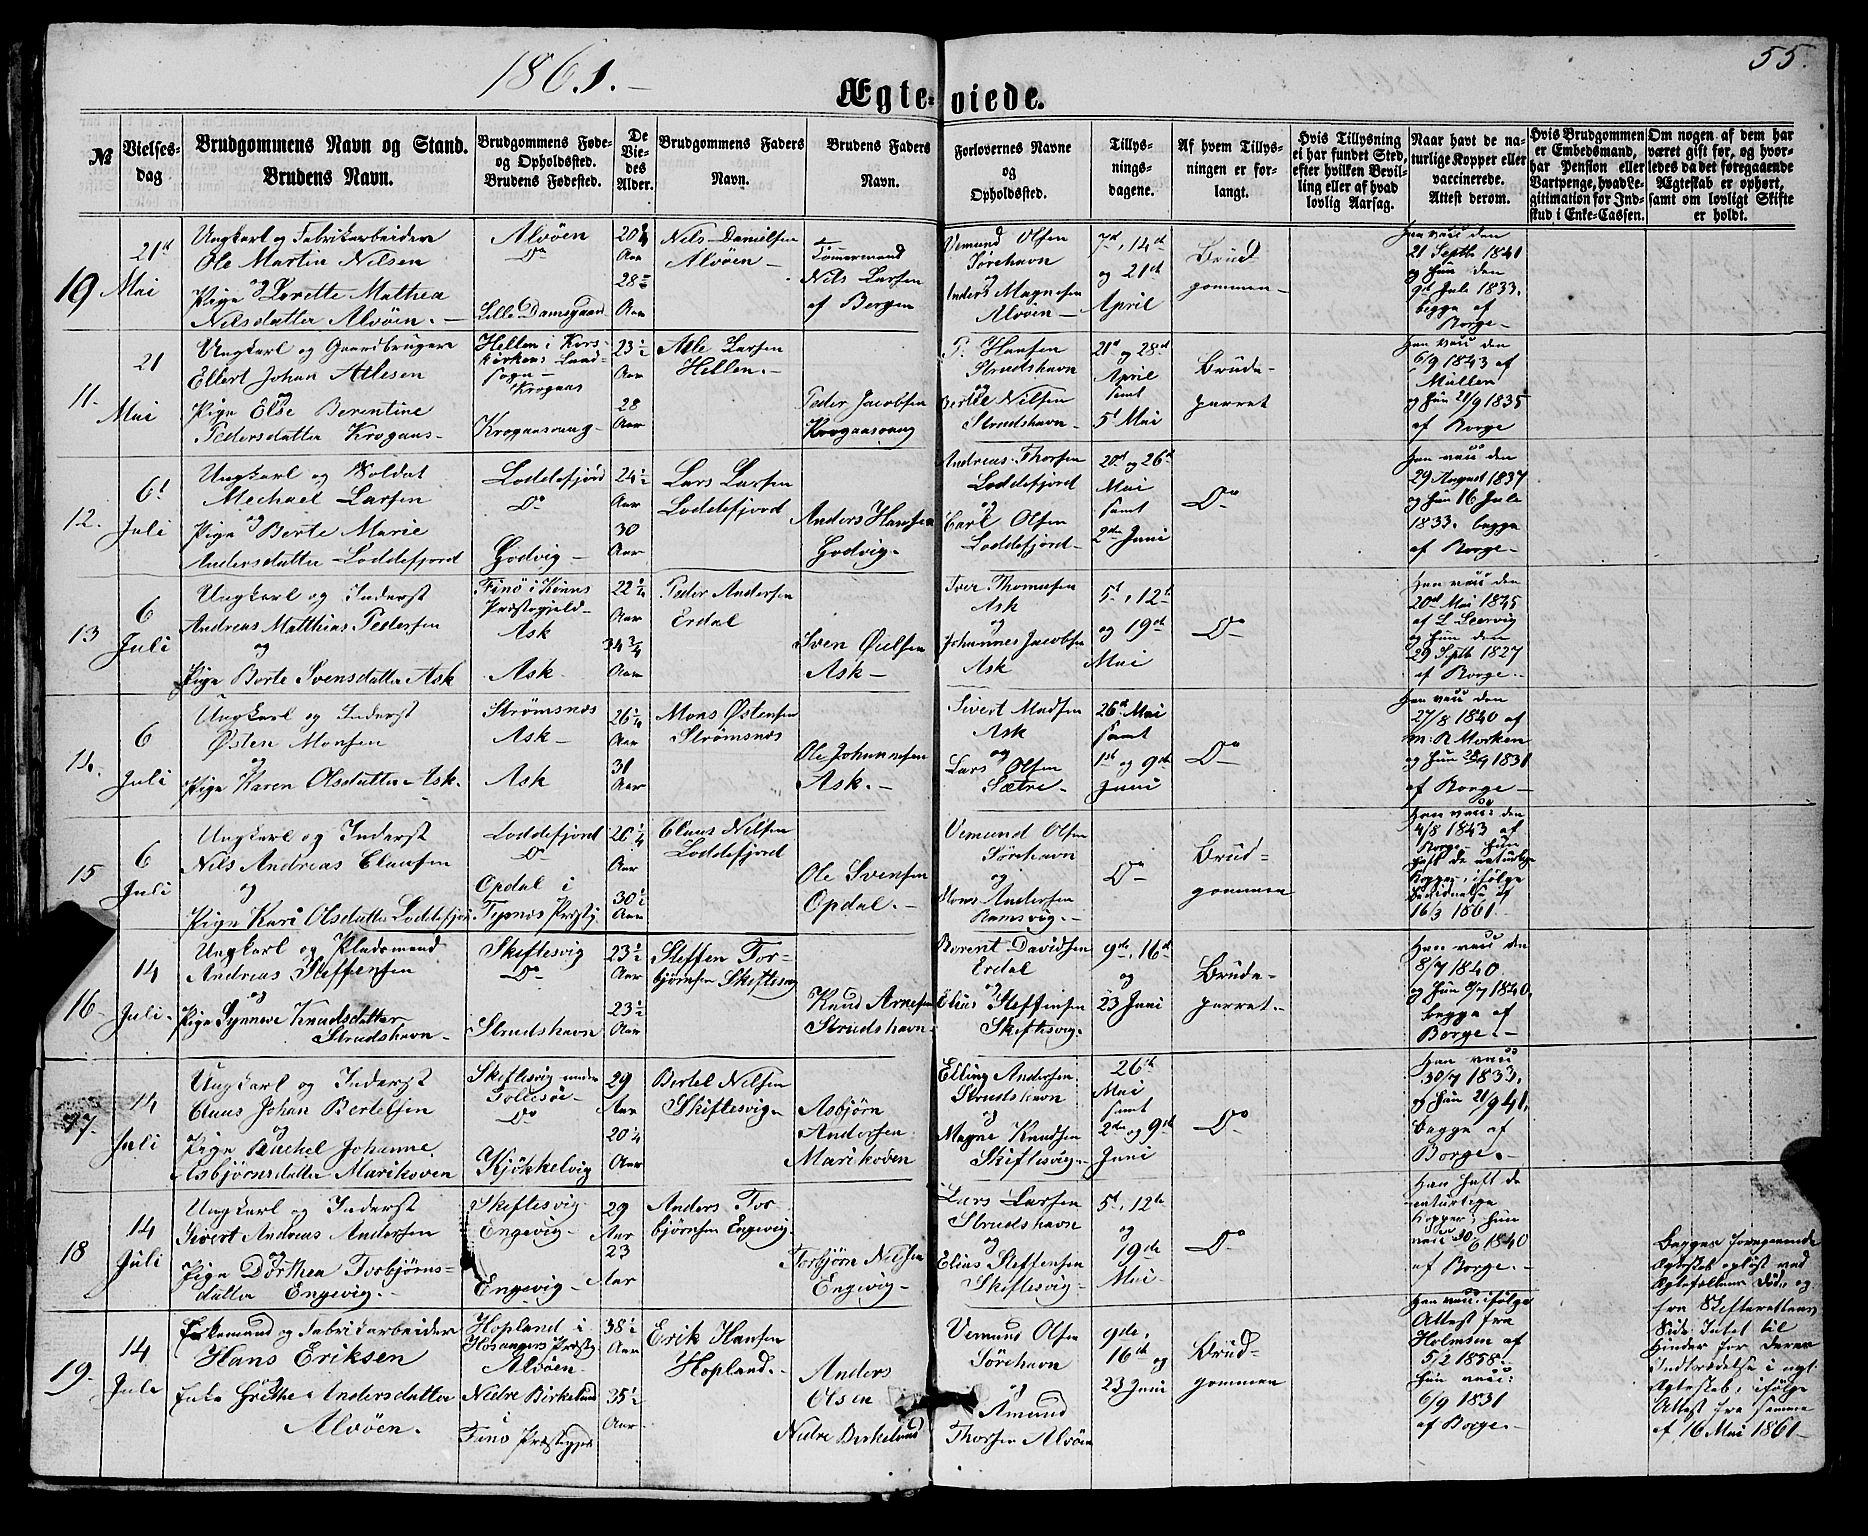 1861.
55.
Ægte-viede.
№
Vielses-
dag
Brudgommens Navn og Stand.
Brudens Navn.
Brudgommens Føde-
og Opholdssted.
Brudens Fødested.
De
Vie-
des
Alder.
Brudgommens Faders
Navn.
Brudens Faders
Navn.
Forlovernes Navne
og
Opholdssted.
Tillys-
nings-
dagene.
Af hvem Tillys-
ningen er for-
langt.
Hvis Tillysning
ei har fundet Sted,
efter hvilken Bevil-
ling eller af hvad
lovlig Aarsag.
Naar havt de na-
turlige Kopper eller
vaccinerede.
Attest derom.
Hvis Brudgommen
er Embedsmand,
har Pension eller
Vartpenge, hvad Le-
gitimation for Ind-
skud i Enke-Cassen.
Om nogen af dem har
været gift før, og hvor-
ledes da det foregaaende
Ægteskab er ophørt,
samt om lovligt Skifte
er holdt.
10
21d
Mai
Ungkarl og Fabrikarbeider
Ole Martin Nilsen
og
Pige Lorette Mathea
Nilsdatter Alvöen.
Alvöen
Do
Lille Damsgaard
Aar
Aar
Nils Danielsen
Alvöen
Tömermand
Nils Larsen
af Bergen
Vemund Olsen
Sörehavn
og
Anders Magnesen
Alvöen
7d, 14d
og 21d
April
Brud
gommen
Han vacc den
21 Septb 1841
og hun den
9d Juli 1833.
begge af
Borge
11.
21
Mai
Ungkarl og Gaardbruger
Ellert Johan Atlesen
og
Pige Else Berentine
Pedersdatter Krogaas
Hellen i Kors-
kirkens Land-
sogn
Krogaas
Krogaasvaag
23 1/2
Aar
28
Aar
Atle Larsen
Hellen.
Peder Jacobsen
Krogaasvaag
P. Hansen
Strudshavn
og
Bertle Nilsen
Strudshavn
21d og 28d
April
samt
5d Mai
Brude-
parret
Han vacc den
6/9 1843 af
Müller
og hun 21/9 1835
af Borge
12.
6d
Juli
Ungkarl og Soldat
Mechael Larsen
og
Pige Berte Marie
Andersdatter Loddefjord
Loddefjord
Do
Godvig
24 1/2
Aar
30
Aar
Lars Larsen
Loddefjord
Anders Hansen
Godvig
Andreas Thorsen
Loddefjord
og
Carl Olsen
Loddefjord
20d og 26d
Mai
samt
2de Juni
Do
Han vacc den
29 August 1837
og hun 16 Juli
1833. begge
af Borge
13
6
Juli
Ungkarl og Inderst
Andreas Matthias Pedersen
og
Pige Berte Svensdatter Ask
Finö i Kinns
Præstegjeld
Ask
Ask
22 1/4
Aar
34 3/4
Aar
Peder Andersen
Erdal
Sven
Ask
Iver Thomasen
Ask
og
Johannes Jacobsen
Ask
5d, 12d
og 19d
Mai
Do
Han vacc den
20d Mai 1845
af L
og hun den
29 Septb 1827
af Borge
14.
6
Juli
Ungkarl og Inderst
Østen Monsen
og
Pige Karen Olsdatter Ask.
Strömsnæs
Ask
Ask
26 1/4
Aar
31
Aar
Mons Østensen
Strömsnæs
Ole Johannesen
Ask.
Sivert Madsen
Ask
og
Lars Olsen
Sætre
26d Mai
samt
1st og 9de
Juni
Do
Han vacc den
27/8 1840 af
M. R Morken
og hun 1831
af Borge
15
6
Juli
Ungkarl og Inderst
Nils Andreas Clausen
og
Pige Kari Olsdatter Loddefjor
Loddefjord
Do
Opdal i
Tysnæs Præstg.
26 1/4
Aar
30 1/2
Aar
Claus Nilsen
Loddefjord
Ole Svensen
Opdal.
Vemund Olsen
Sörehavn
og
Mons Andersen
Ramsvig
Do
Brud-
gommen
Han vacc den
4/8 1843 af
Borge hun
haft de naturlige
Kopper, ifölge
16/3 1861
16
14
Juli
Ungkarl og Pladsmand
Andreas Steffensen
og
Pige Synneve Knudsdatter
Strudshavn
Skiftesvig
Do
Strudshavn
23 1/2
Aar
23 1/2
Aar
Steffen Tor-
björnsen Skiftesvig
Knud Arnesen
Strudshavn
Berent Davidsen
Erdal
og
Elias Steffensen
Skiftesvig
9de, 16d
og
23 Juni
Brude-
parret
Han vacc den
8/7 1840
og hun 9/7 1840,
begge af
Borge.
17.
14
Juli
Ungkarl og Inderst
Claus Johan Bertelsen
og
Pige Rachel Johanne
Asbjørnsdatter Marikoven
Skiftesvig under
Follesöe
Do
Kjökkelvig
29
Aar
20 1/4
Aar
Bertel Nilsen
Skiftesvig
Asbjörn
Andersen
Marikoven
Elling Andersen
Strudshavn
og
Magne Knudsen
Skiftesvig
26th
Mai
samt
2de og 9de
Juni
Do
Han vacc
30/7 1833,
og hun 21/9 41,
begge af
Borge.
18
14
Juli
Ungkarl og Inderst
Sivert Andreas Andersen
og
Pige Dorthea Torbjörns-
datter Engevig.
Skiftesvig
Engevig
Engevig
29
Aar
23
Aar
Anders Tor
björnsen Engevig
Torbjörn Nilsen
Engevig
Lars Larsen
Strudshavn
og
Elias Steffensen
Skiftesvig
5d, 12te
og
19de
Mai
Do
Han haft de
naturlige
Kopper; hun
vacc 30/6 1840
af Borge.
19.
14
Jule
Enkemand og Fabrikarbeider
Hans Eriksen
og
Enke Grethe Andersdatter
Alvöen.
Hopland i
Hosangers Præstg
Alvöen
Nedre Birkeland
i
Finö Præstegjeld
38 1/2
Aar
35 1/2
Aar
Erik Hansen
Hopland.
Anders
Olsen
Nedre Birkeland
Vemund Olsen
Sörehavn
og
Amund
Thorsen Alvöen
9de,
16th og
23 Juni
Brud-
gommen
Han vacc: ifölge
Attest fra
Holmsen af
5/2 1858.
Hun vacc:
6/9 1831
af Borge.
Begges foregaaende
Ægteskab oplöst ved
Ægtefællens Död, og
fra Skifterettens
Side Intet til
Hinder for deres
Indtrædelse i nyt
Ægteskab, ifölge
Attest fra samme
af 16 Mai 1861